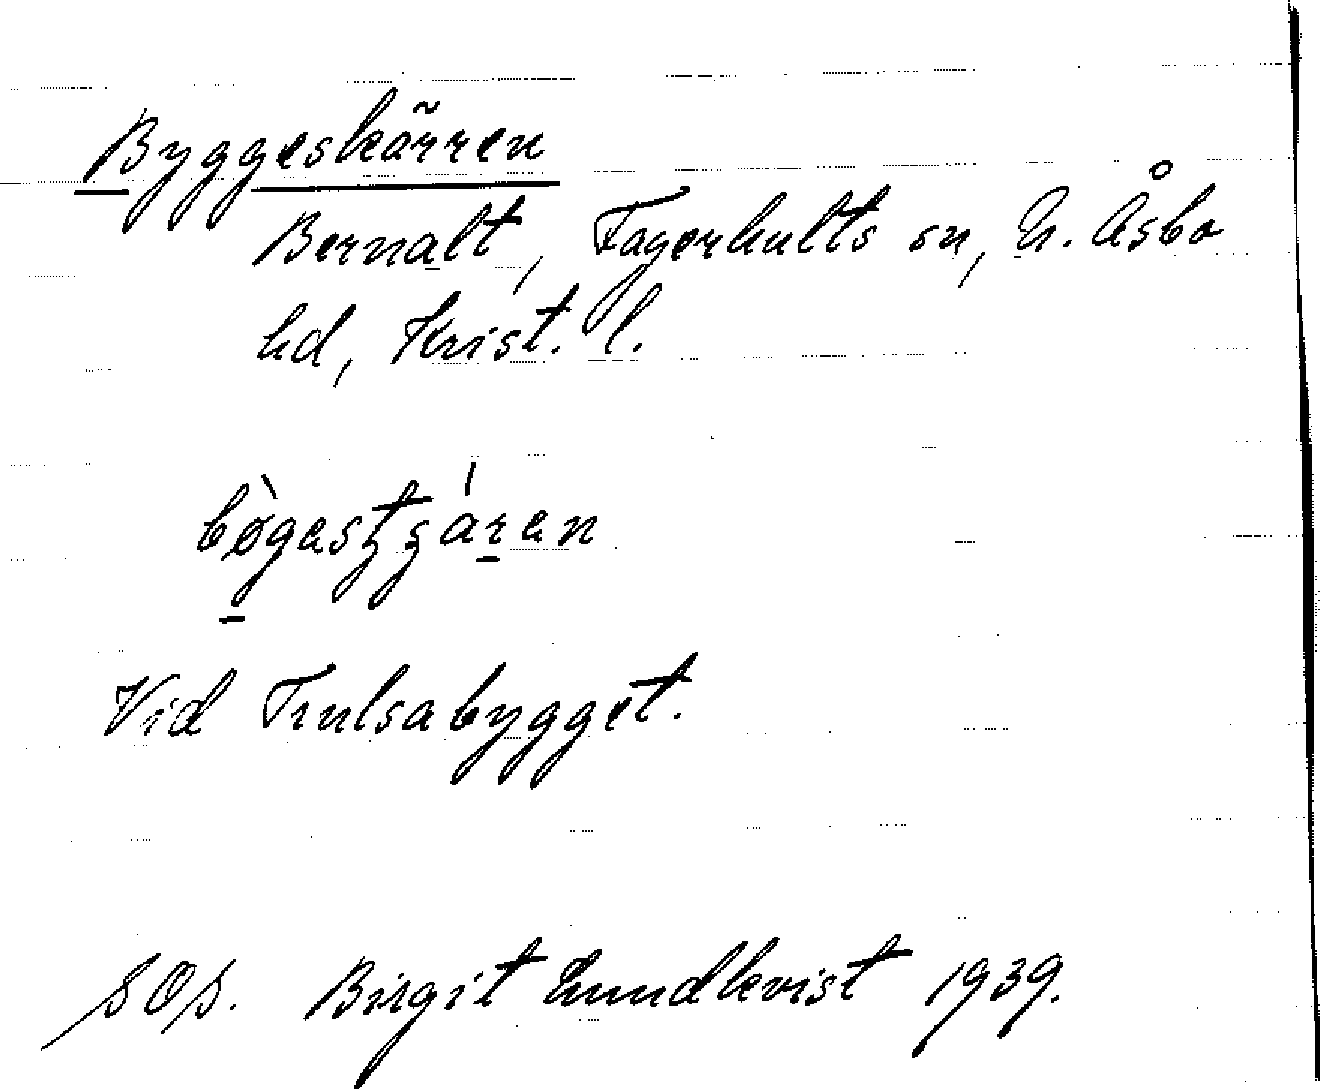 Byggeskärren
Bernalt, Fagerhults sn, N. Åsbo
hd, Krist. l.
Vid Trulsabygget.
SOS. Birgit Lundkvist 1939.